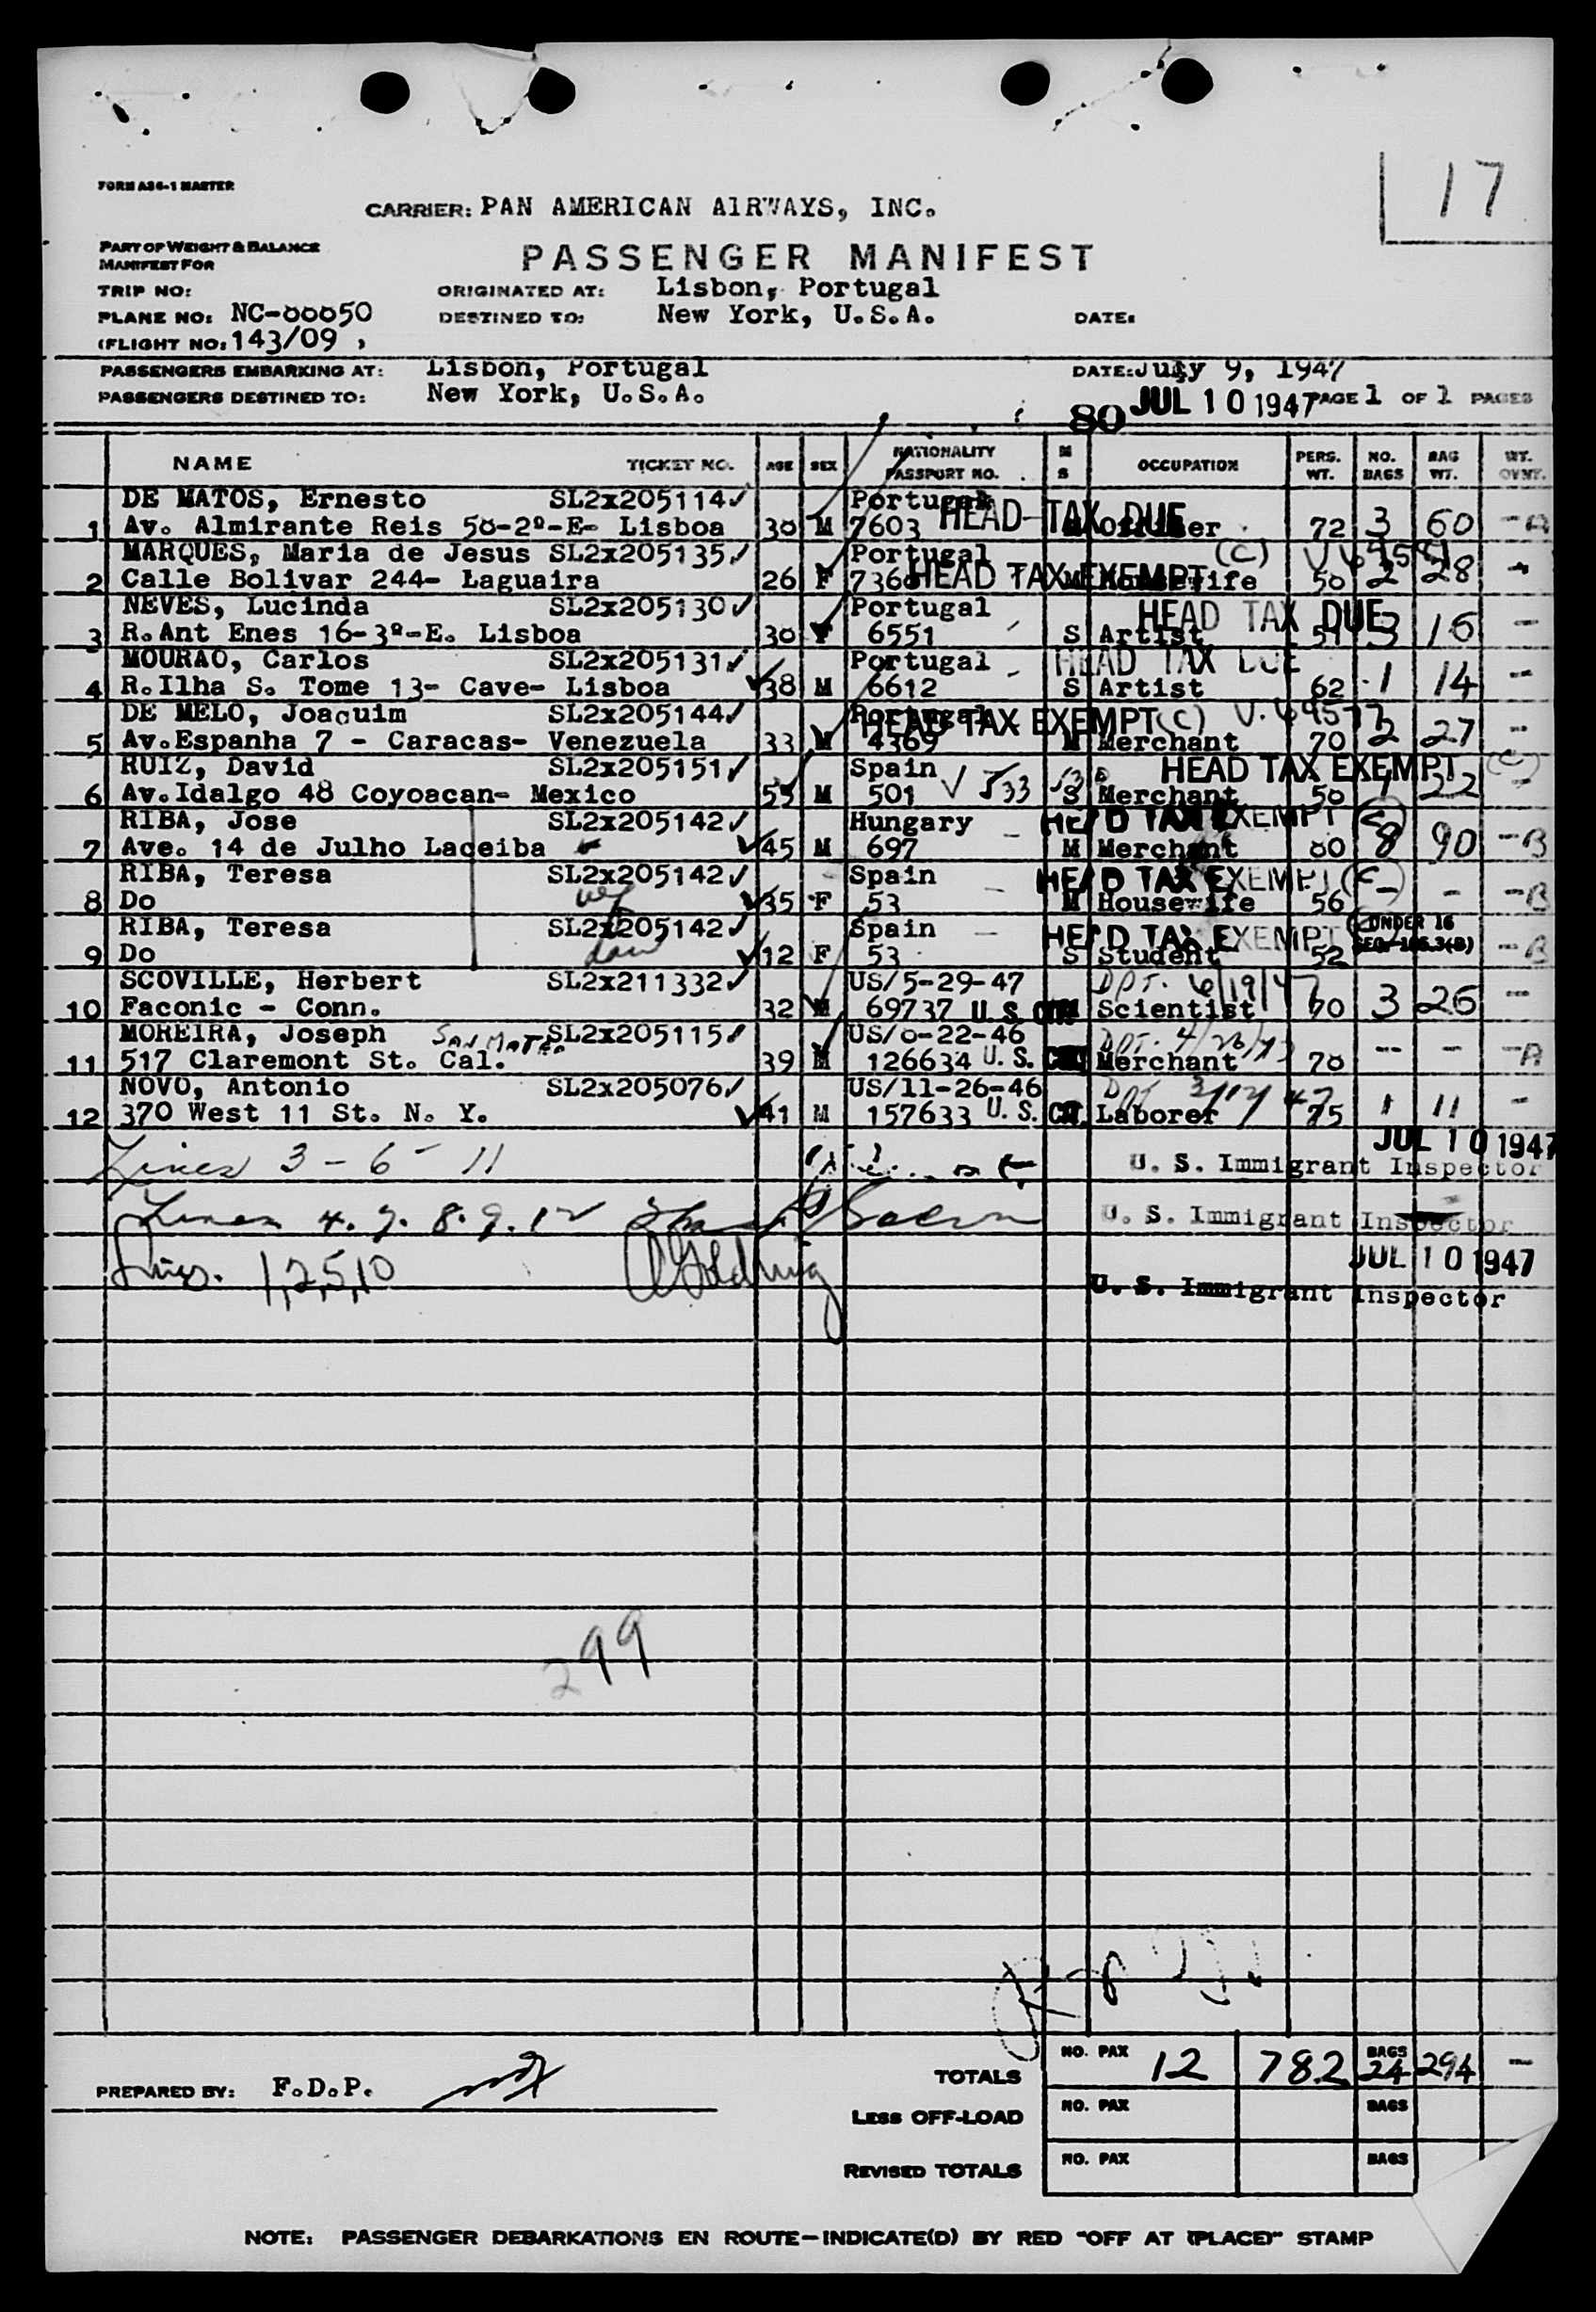 17
FORM A36-1 MASTER
CARRIER: PAN AMERICAN AIRWAYS, INC.
PART OF WEIGHT & BALANCE
MANIFEST FOR
PASSENGER MANIFEST
TRIP NO:
ORIGINATED AT: Lisbon, Portugal
PLANE NO: NC-88850
DESTINED TO: New York, U.S.A.
DATE:
(FLIGHT NO: 143/09 )
PASSENGERS EMBARKING AT: Lisbon, Portugal
DATE: July 9, 1947
PASSENGERS DESTINED TO: New York, U.S.A.
80 JUL 10 1947 PAGE 1 OF 1 PAGES
NAME TICKET NO. AGE SEX NATIONALITY PASSPORT NO. M S OCCUPATION PERS. WT. NO. BAGS BAG WT. WT. OVNT.
DE MATOS, Ernesto SL2x205114 Portugal HEAD TAX DUE
1 Av. Almirante Reis 58-2º-E- Lisboa 38 M 7603 72 3 60 - A
MARQUES, Maria de Jesus SL2x205135 Portugal (C)
2 Calle Bolivar 244- Laguaira 26 F HEAD TAX EXEMPT M Housewife 58 2 28 -
NEVES, Lucinda SL2x205130 Portugal HEAD TAX DUE
3 R.Ant Enes 16-3º-E. Lisboa 30 F 6551 S Artist 51 3 16 -
MOURAO, Carlos SL2x205131 Portugal HEAD TAX DUE
4 R.Ilha S. Tome 13- Cave- Lisboa 38 M 6612 S Artist 62 1 14 -
DE MELO, Joaquim SL2x205144 Portugal HEAD TAX EXEMPT (C)
5 Av.Espanha 7 - Caracas- Venezuela 33 M 4369 M Merchant 70 2 27 -
RUIZ, David SL2x205151 Spain HEAD TAX EXEMPT (C)
6 Av.Idalgo 48 Coyoacan- Mexico 55 M 501 S Merchant 58 1 22 -
RIBA, Jose SL2x205142 Hungary HEAD TAX EXEMPT (C)
7 Ave. 14 de Julho Laceiba 45 M 697 M Merchant 80 8 90 - B
RIBA, Teresa SL2x205142 Spain HEAD TAX EXEMPT (C)
8 Do 35 F 53 M Housewife 56 - - - B
RIBA, Teresa SL2x205142 Spain HEAD TAX EXEMPT UNDER 16
9 Do 12 F 53 S Student 52 - B
SCOVILLE, Herbert SL2x211332 US/5-29-47 DPT. 6/19/47
10 Faconic - Conn. 32 M 69737 U.S. Scientist 70 3 26 -
MOREIRA, Joseph SAN MATEO SL2x205115 US/8-22-46
11 517 Claremont St. Cal. 39 M 126634 U.S. Merchant 78 - - A
NOVO, Antonio SL2x205076 US/11-26-46
12 370 West 11 St. N. Y. 41 M 157633 U.S. Laborer 75 1 11 -
JUL 10 1947
Lines 3 - 6 - 11 U. S. Immigrant Inspector
Lines 4. 7. 8. 9. 12 U. S. Immigrant Inspector
Lines. 1,2,5,10 JUL 10 1947
U. S. Immigrant Inspector
299
TOTALS NO. PAX 12 782 BAGS 24 294 -
PREPARED BY: F.D.P.
LESS OFF-LOAD NO. PAX BAGS
REVISED TOTALS NO. PAX BAGS
NOTE: PASSENGER DEBARKATIONS EN ROUTE-INDICATE(D) BY RED "OFF AT (PLACE)" STAMP